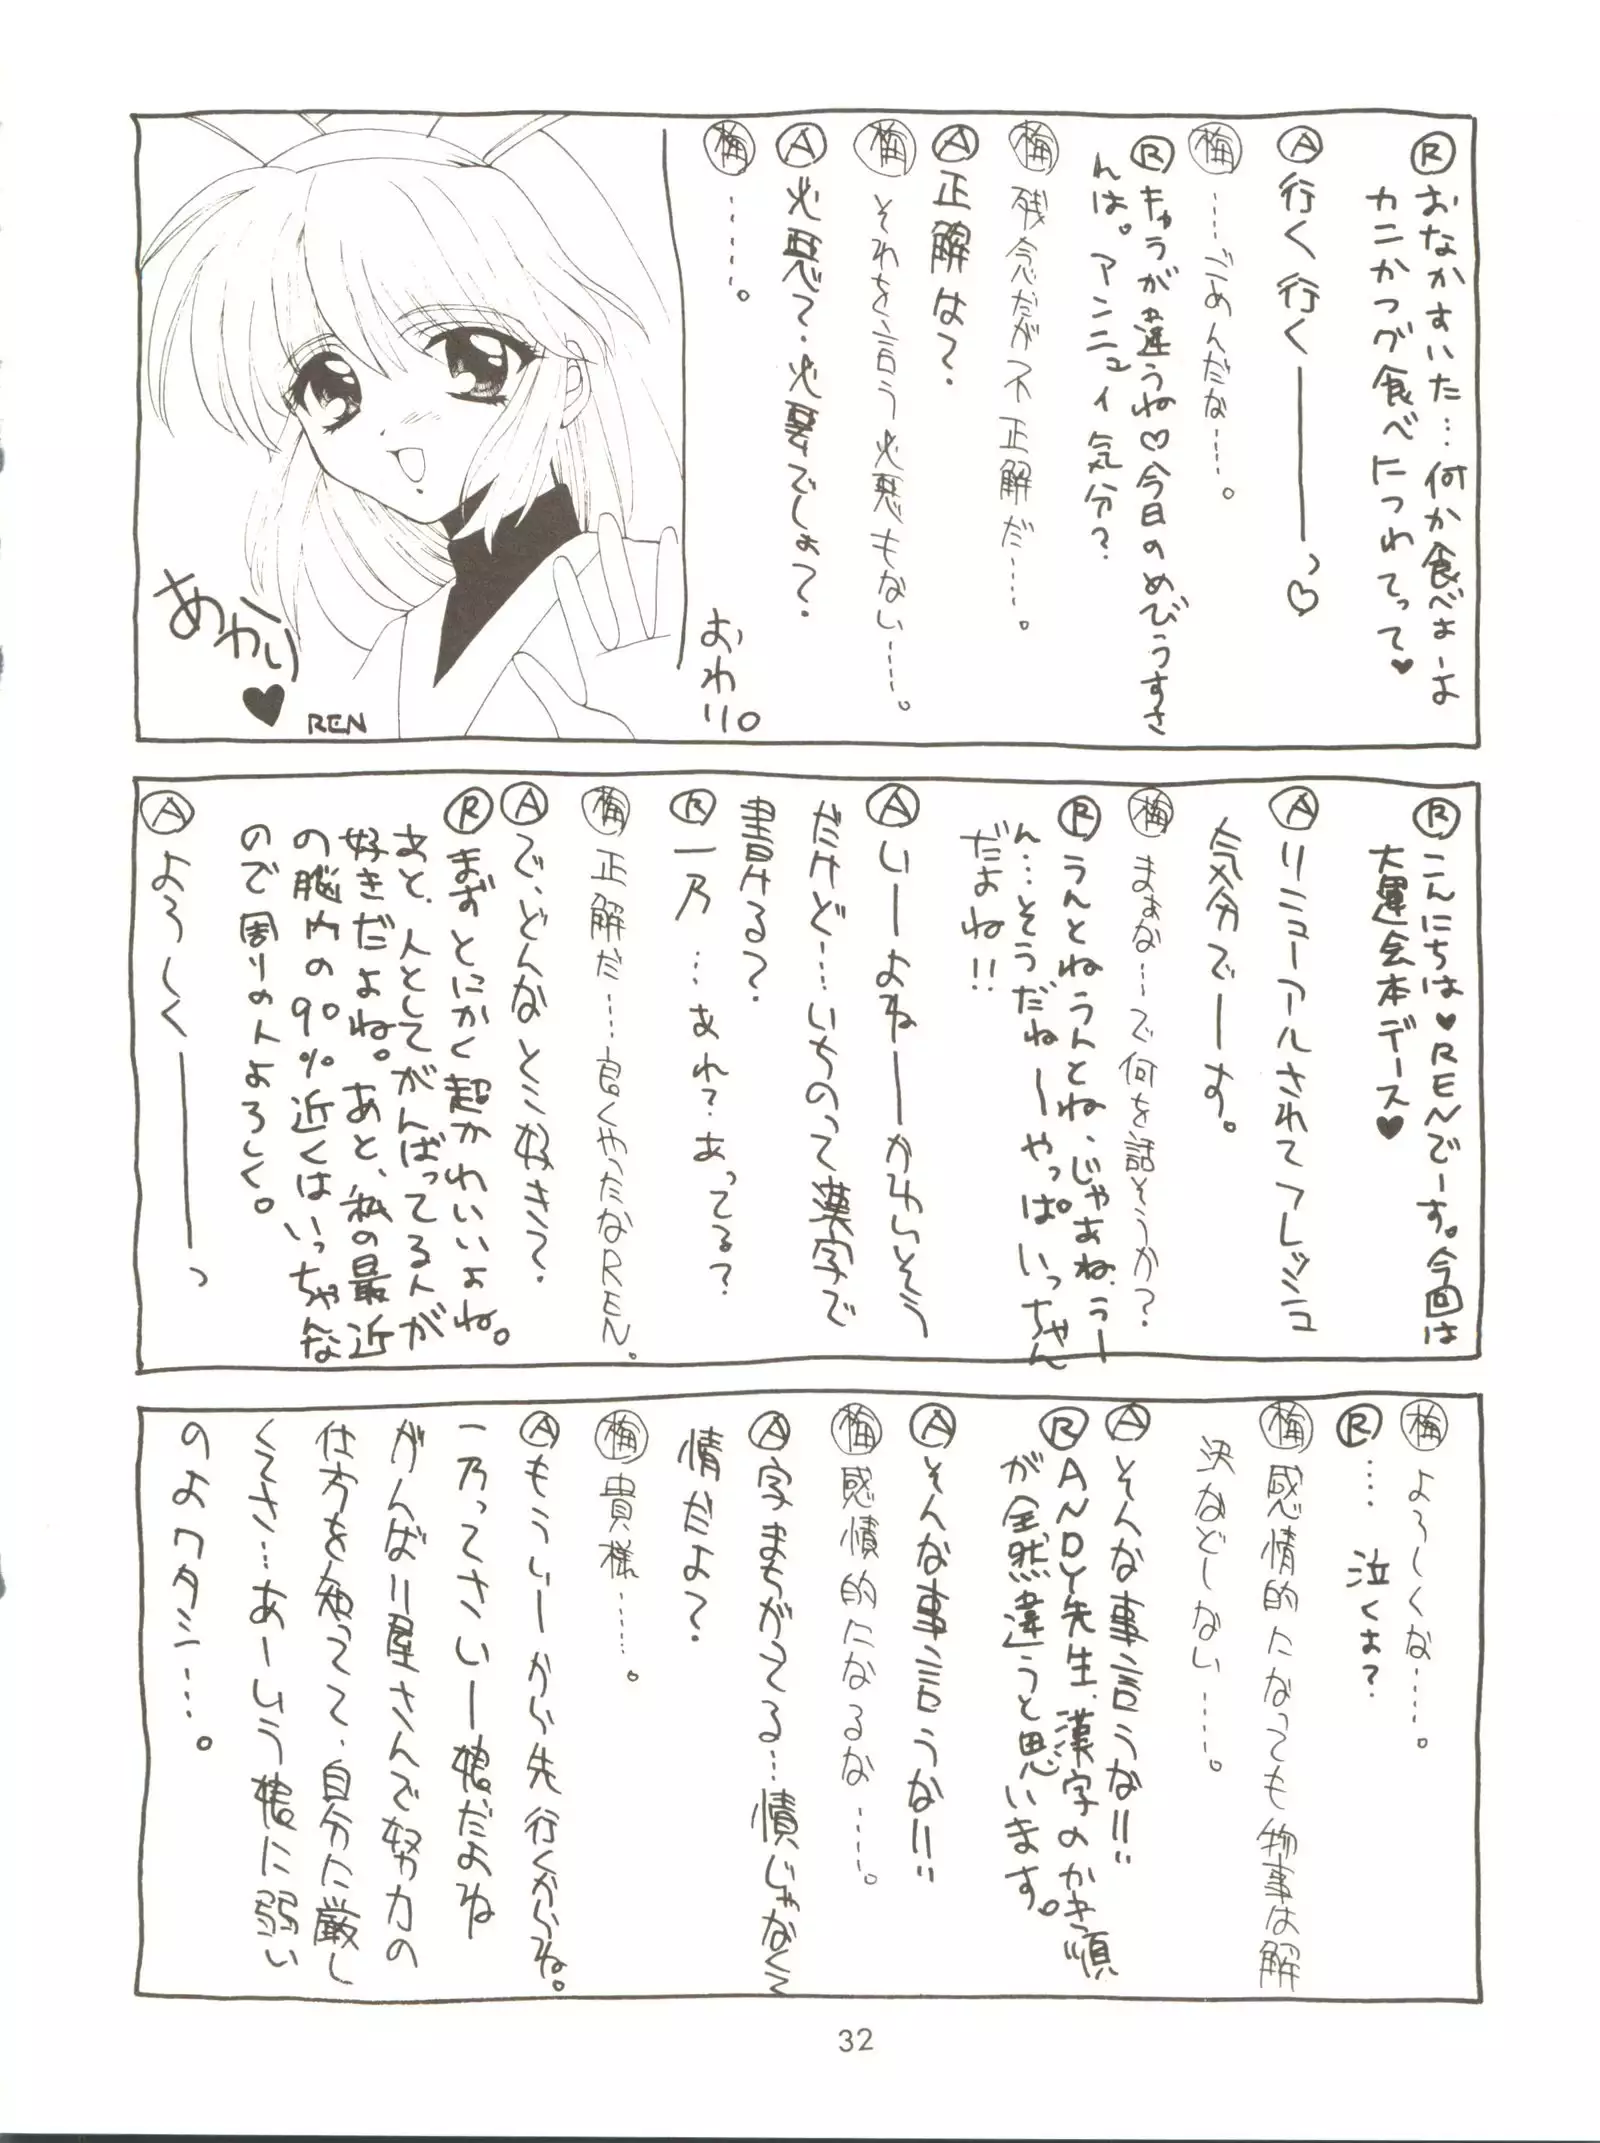 Ⓡおなかすいた…何か食べよーよ
カニかつグ食べにつれてって♥
Ⓐ行く行く────っ♡
㊙梅……ごめんだな……。
Ⓡキャラが違うね♡今日のめびうすさ
んは。アンニュイ気分?
梅 残念だが不正解だ……。
Ⓐ正解は?
梅 それを言う必惡もない……。
Ⓐ必惡て・必要でしょ?
梅……。
おわり。
あかり♥
REN
Ⓡこんにちは♥RENでーす。今回は
大運会本デース♥
Ⓐリニューアルされてフレッシュ
気分でーす。
梅 まぁな…で何を話そうか?
Ⓡうんとねうんとね、じゃあね、うー
ん…そうだねーやっぱいっちゃん
だよね!!
Ⓐいーよねーーかわいそう
だけど…いちのって漢字で
書ける?
Ⓡ一乃…あれ?あってる?
梅 正解だ……良くやったなREN。
Ⓐで、どんなとこ好き?
Ⓡまずとにかく超かわいいよね。
あと、人としてがんばってる人が
好きだよね。あと、私の最近
の脳内の90%近くはいっちゃんな
ので周りの人よろしく。
Ⓐよろしく────っ
梅 よろしくな……。
Ⓡ…泣くよ?
梅 感情的になっても物事は解
決などしない……。
Ⓐそんな事言うな!!
ⓇANDY先生、漢字のかき順
が全然違うと思います。
Ⓐそんな事言うな!!
梅 感憤的になるな……。
Ⓐ字まちがってる…憤じゃなくて
情だよ?
梅 貴様……。
Ⓐもういーから先行くからね。
一乃ってさいー娘だよね
がんばり屋さんで努力の
仕方を知ってて、自分に厳し
くてさ…あーいう娘に弱い
のよワタシ…。
32